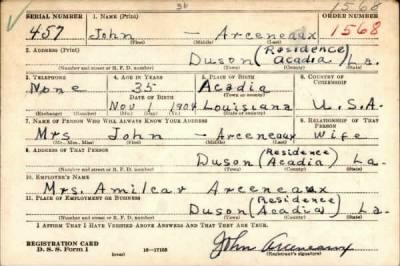 36 1568
SERIAL NUMBER 1. NAME (Print) ORDER NUMBER
457 John - Arceneaux 1568
(First) (Middle) (Last)
2. ADDRESS (Print)
Duson (Residence Acadia) La.
(Number and street or R. F. D. number) (Town) (County) (State)
3. TELEPHONE 4. AGE IN YEARS 5. PLACE OF BIRTH 6. COUNTRY OF CITIZENSHIP
None 35 Acadia
DATE OF BIRTH (Town or county)
Nov 1 1904 Louisiana U.S.A.
(Exchange) (Number) (Mo.) (Day) (Yr.) (State or country)
7. NAME OF PERSON WHO WILL ALWAYS KNOW YOUR ADDRESS 8. RELATIONSHIP OF THAT PERSON
Mrs John - Arceneaux Wife
(Mr., Mrs., Miss) (First) (Middle) (Last)
9. ADDRESS OF THAT PERSON
Duson (Residence Acadia) La.
(Number and street or R. F. D. number) (Town) (County) (State)
10. EMPLOYER'S NAME
Mrs. Amilcar Arceneaux
11. PLACE OF EMPLOYMENT OR BUSINESS
Duson (Residence Acadia) La.
(Number and street or R. F. D. number) (Town) (County) (State)
I AFFIRM THAT I HAVE VERIFIED ABOVE ANSWERS AND THAT THEY ARE TRUE.
REGISTRATION CARD
D. S. S. Form 1 16-17105 John Arceneaux
(Registrant's signature)